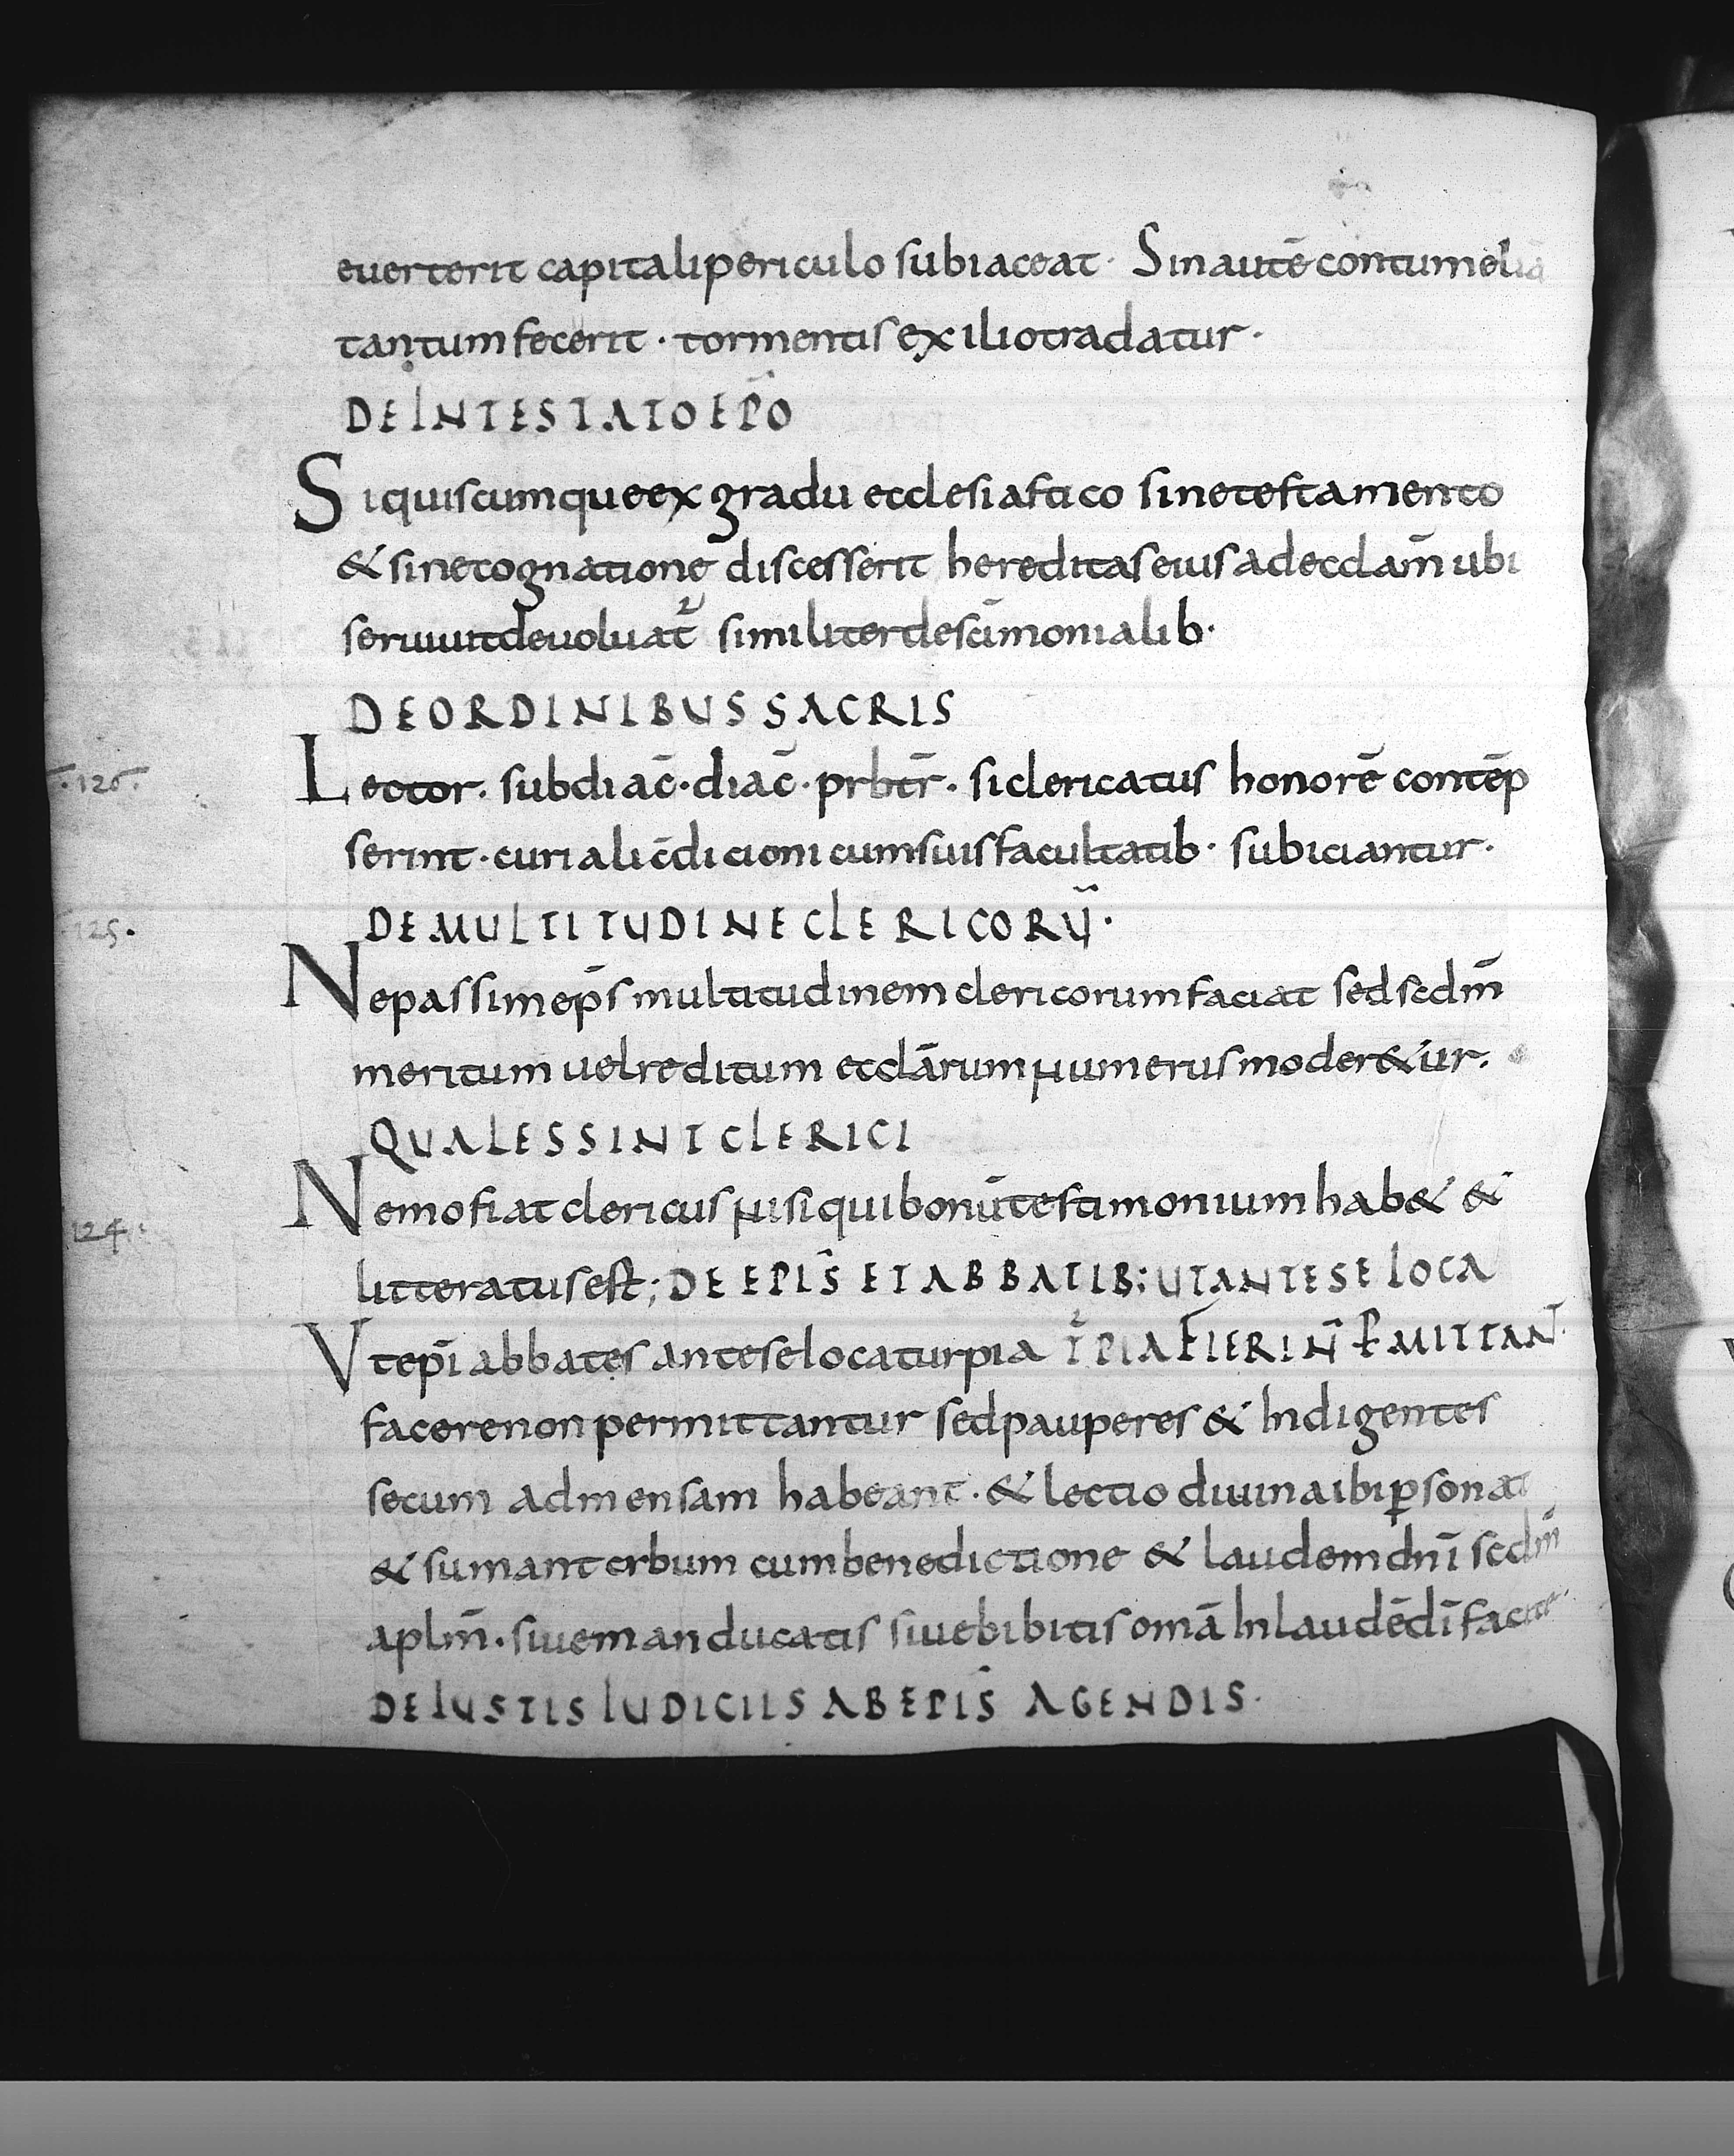 euerterit capitali periculo subiaceat· Sin autē contumeliā
tantum fecerit · tormentis exilio tradatur ·
DE INTESTATO EPŌ
Si quiscumque ex gradu ecclesiastico sine testamento
& sine cognatione discesserit hereditas eius ad eccłam̄ ubi
seruiuit deuoluat᷑ similiter de sc̄imonialib·
DE ORDINIBUS SACRIS
·126·
Lector. subdiac̄·diac̄·prbt̄r· si clericatus honorē contēp
serint·curiali c̄dicioni cum suis facultatib· subiciantur·
DE MULTITUDINE CLERICORŪ·
125·
Ne passim ep̄s multitudinem clericorum faciat sed scdm̄
meritum uel reditum ecclārum numerus moder&ur·
QUALES SINT CLERICI
Nemo fiat clericus nisi qui bonū testimonium hab& &
124·
litteratus est; DE EPIS̄ ET ABBATIB; UT ANTE SE LOCA
Ut ep̄i abbates ante se loca turpia T᷑PIA FIERI N̄ P̱MITTAN̄·
facere non permittantur sed pauperes & Indigentes
secum ad mensam habeant·& lectio diuina ibi ꝑsonat
& sumant cibum cum benedictione & laudem dn̄i scdm̄
aplm̄·siue manducatis siue bibitis omā In laudē dī facite·
DE IUSTIS IUDICIIS AB EPIS̄ AGENDIS·